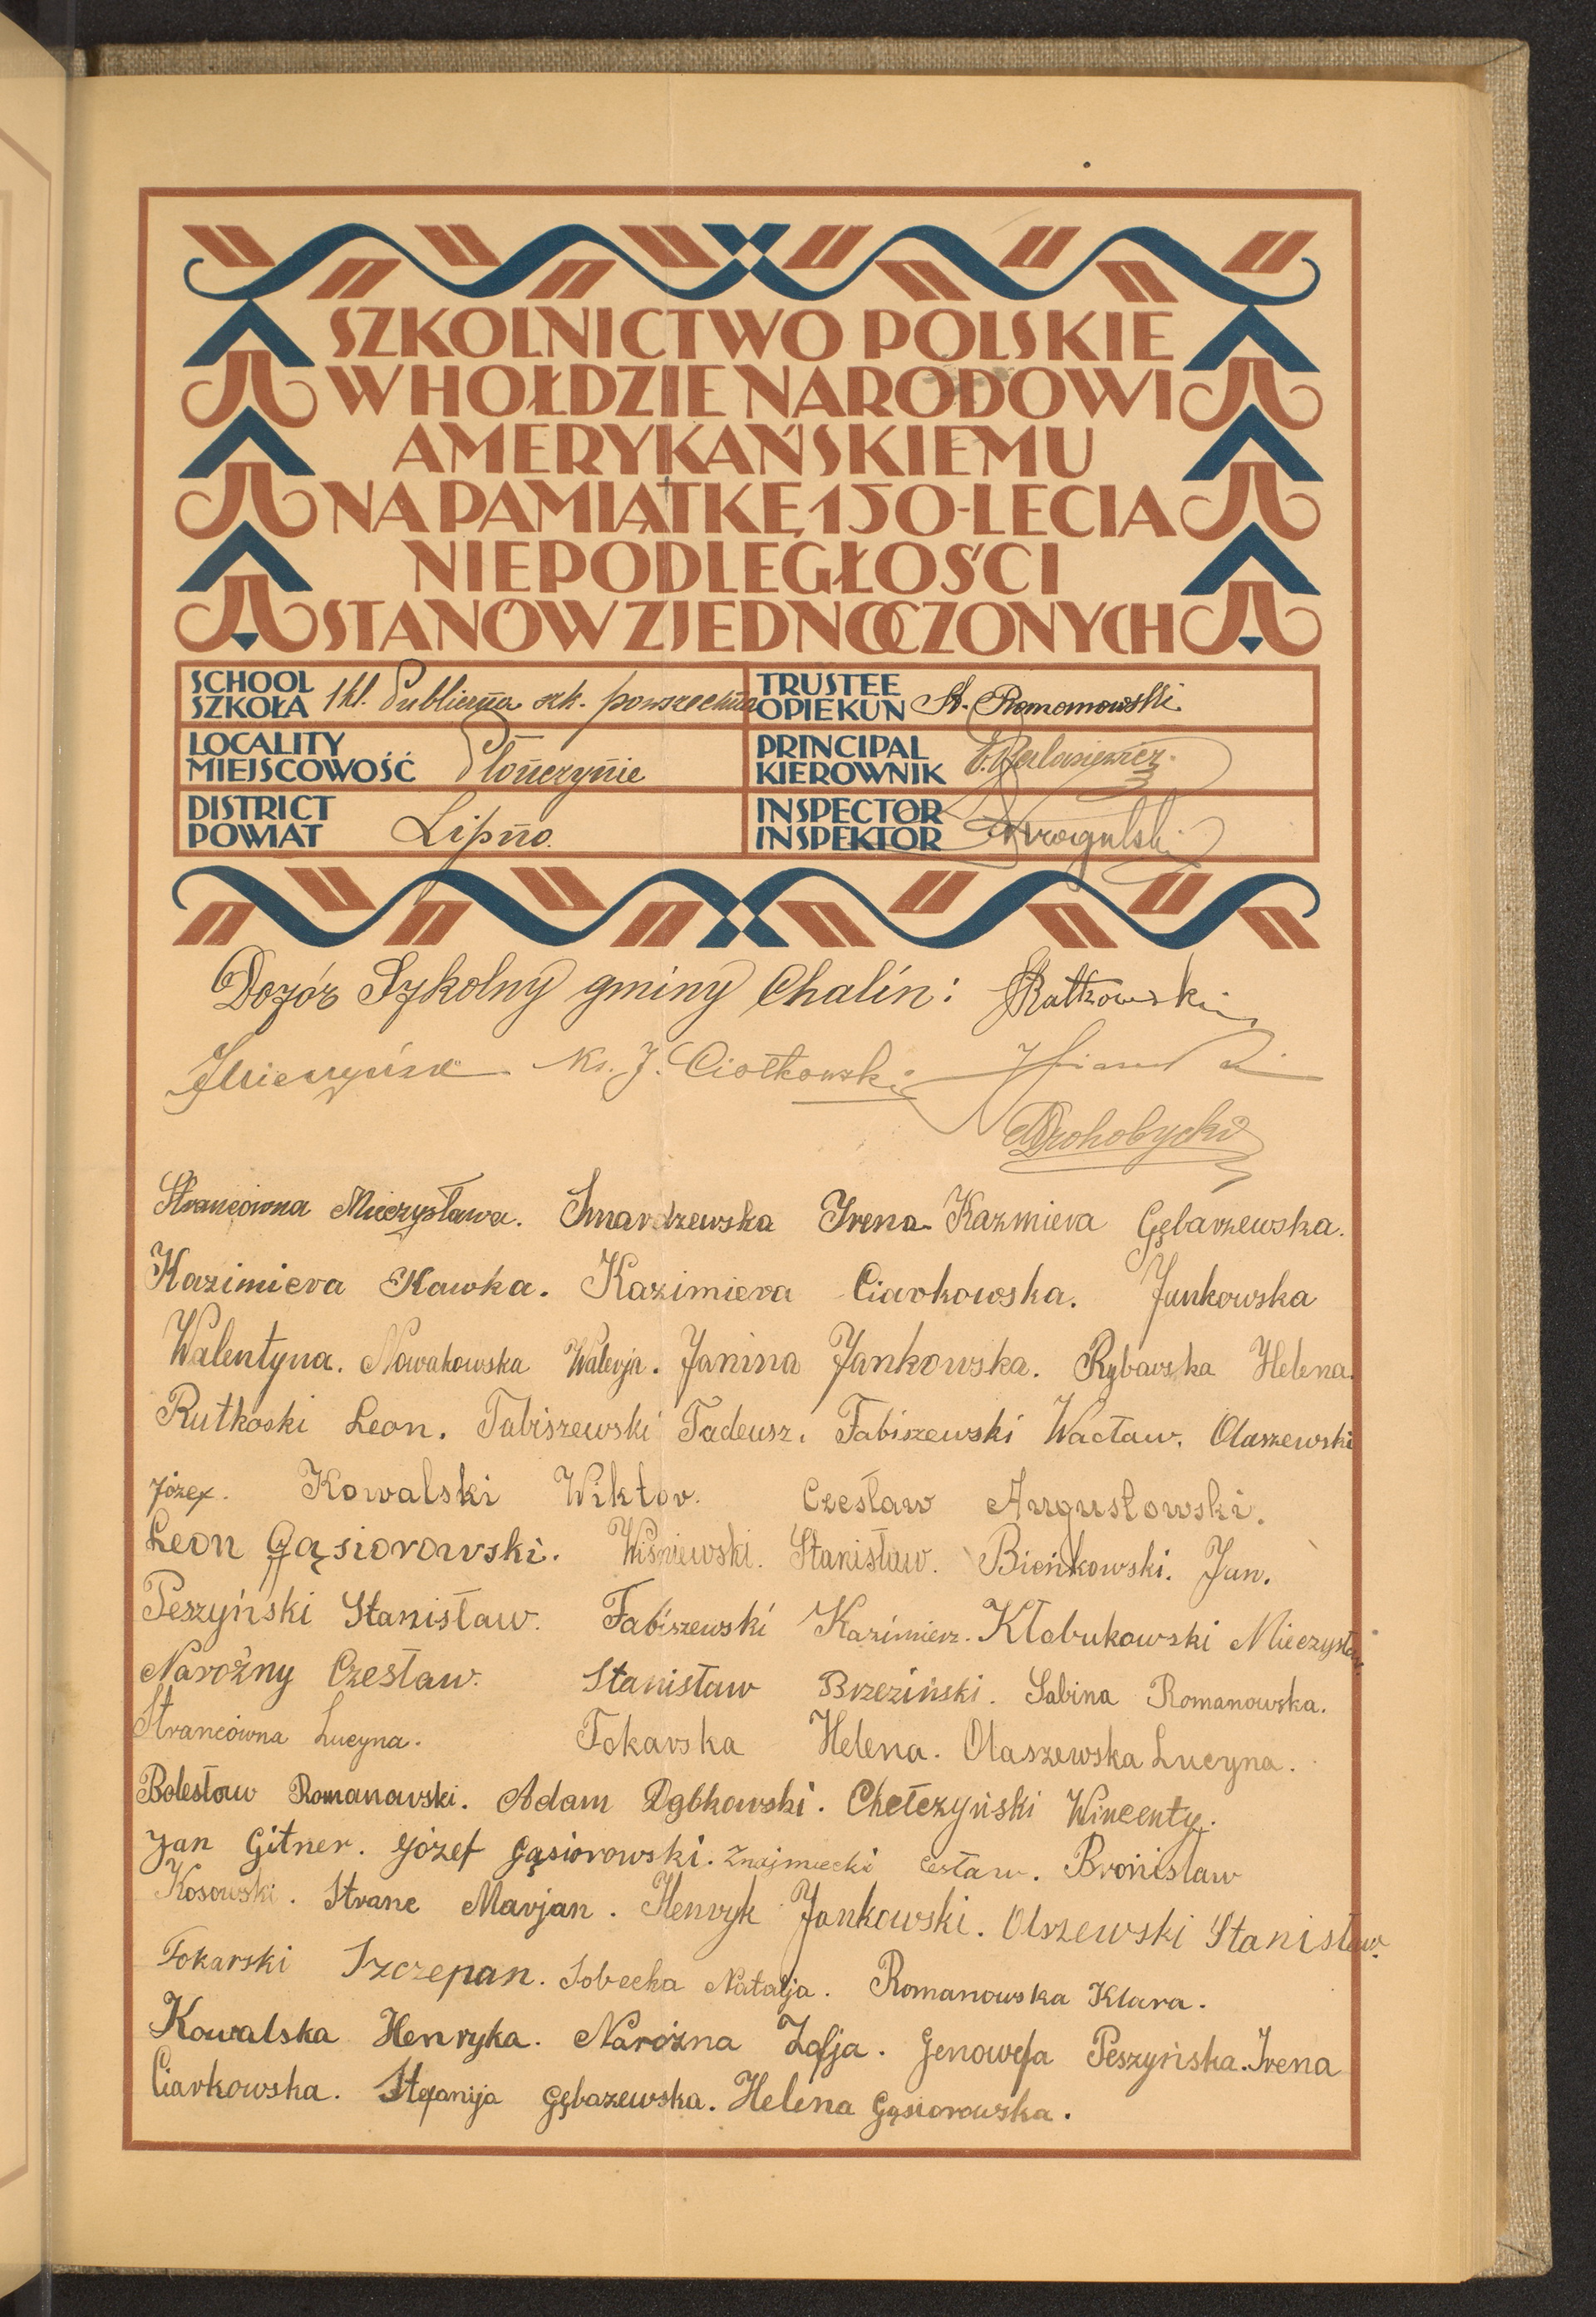 SZKOLNICTWO POLSKIE
W HOŁDZIE NARODOWI
AMERYKAŃSKIEMU
NA PAMIĄTKĘ 150-LECIA
NIEPODLEGŁOŚCI
STANÓW ZJEDNOCZONYCH
SCHOOL
SZKOŁA 1 kl. Publiczna szk. powszechna
TRUSTEE
OPIEKUN St. Romanowski
LOCALITY
MIEJSCOWOŚĆ Płonczynie
PRINCIPAL
KIEROWNIK
DISTRICT
POWIAT Lipno.
INSPECTOR
INSPEKTOR
Dozór Szkolny gminy Chalin: Ratkowski
Ks. J. Ciołkowski
Drohobycki
Strancówna Mieczysława. Smardzewska Irena Kazmiera Gębarzewska.
Kazimiera Kawka. Kazimiera Ciarkowska. Jankowska
Walentyna. Nowakowska Walerja. Janina Jankowska. Rybarska Helena.
Rutkoski Leon. Fabiszewski Tadeusz. Fabiszewski Wacław. Olaszewski
Józef. Kowalski Wiktor. Czesław Augustowski.
Leon Gąsiorowski. Wiśniewski. Stanisław. Bieńkowski. Jan.
Peszyński Stanisław. Fabiszewski Kazimierz. Kłobukowski Mieczysław.
Narożny Czesław. Stanisław Brzeziński. Sabina Romanowska.
Strancówna Lucyna. Tokarska Helena. Olaszewska Lucyna.
Bolesław Romanowski. Adam Dąbkowski. Chełczyński Wincenty.
Jan Gitner. Józef Gąsiorowski. Znajmiecki Cesław. Bronisław
Kosowski. Stranc Marjan. Henryk Jankowski. Olszewski Stanisław.
Tokarski Szczepan. Sobecka Natalja. Romanowska Klara.
Kowalska Henryka. Narożna Zofja. Genowefa Peszyńska. Irena
Ciarkowska. Stefanija Gębazewska. Helena Gąsiorowska.